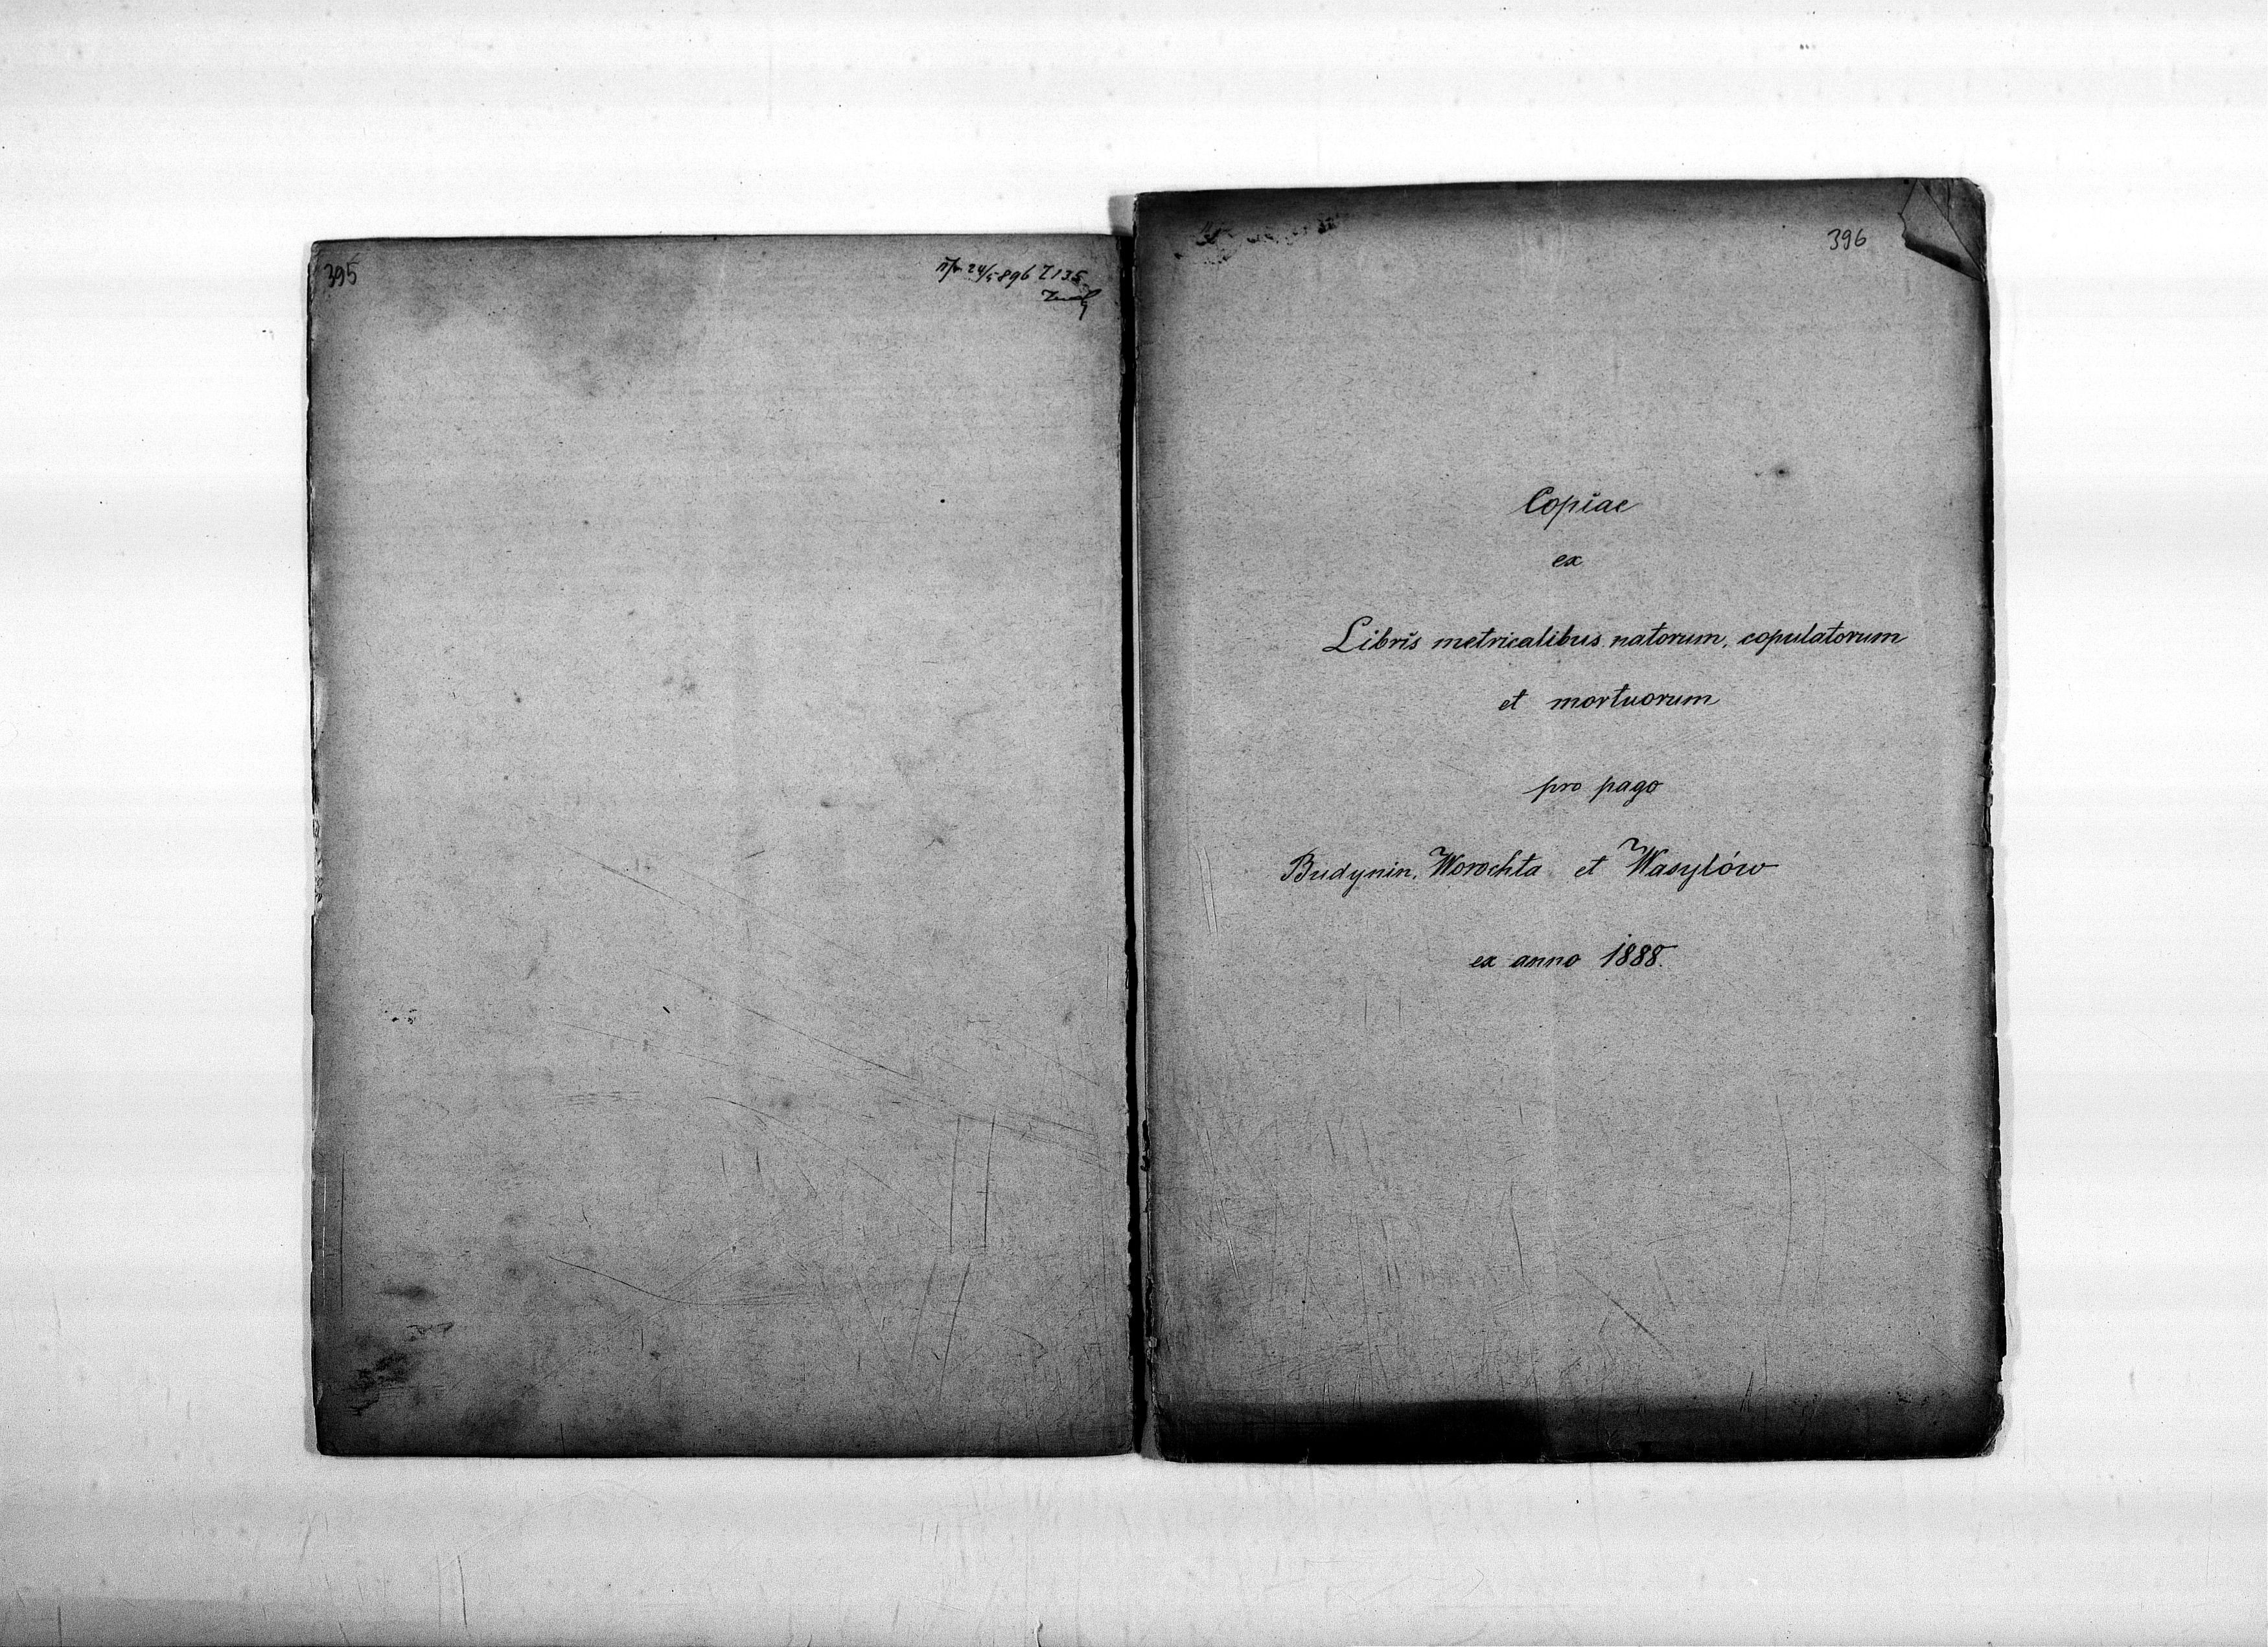 395
24/5 896 Z 135
396
Copiae
ex
Libris metricalibus natorum, copulatorum
et mortuorum
pro pago
Budynin, Worochta et Wasylów
ex anno 1888.